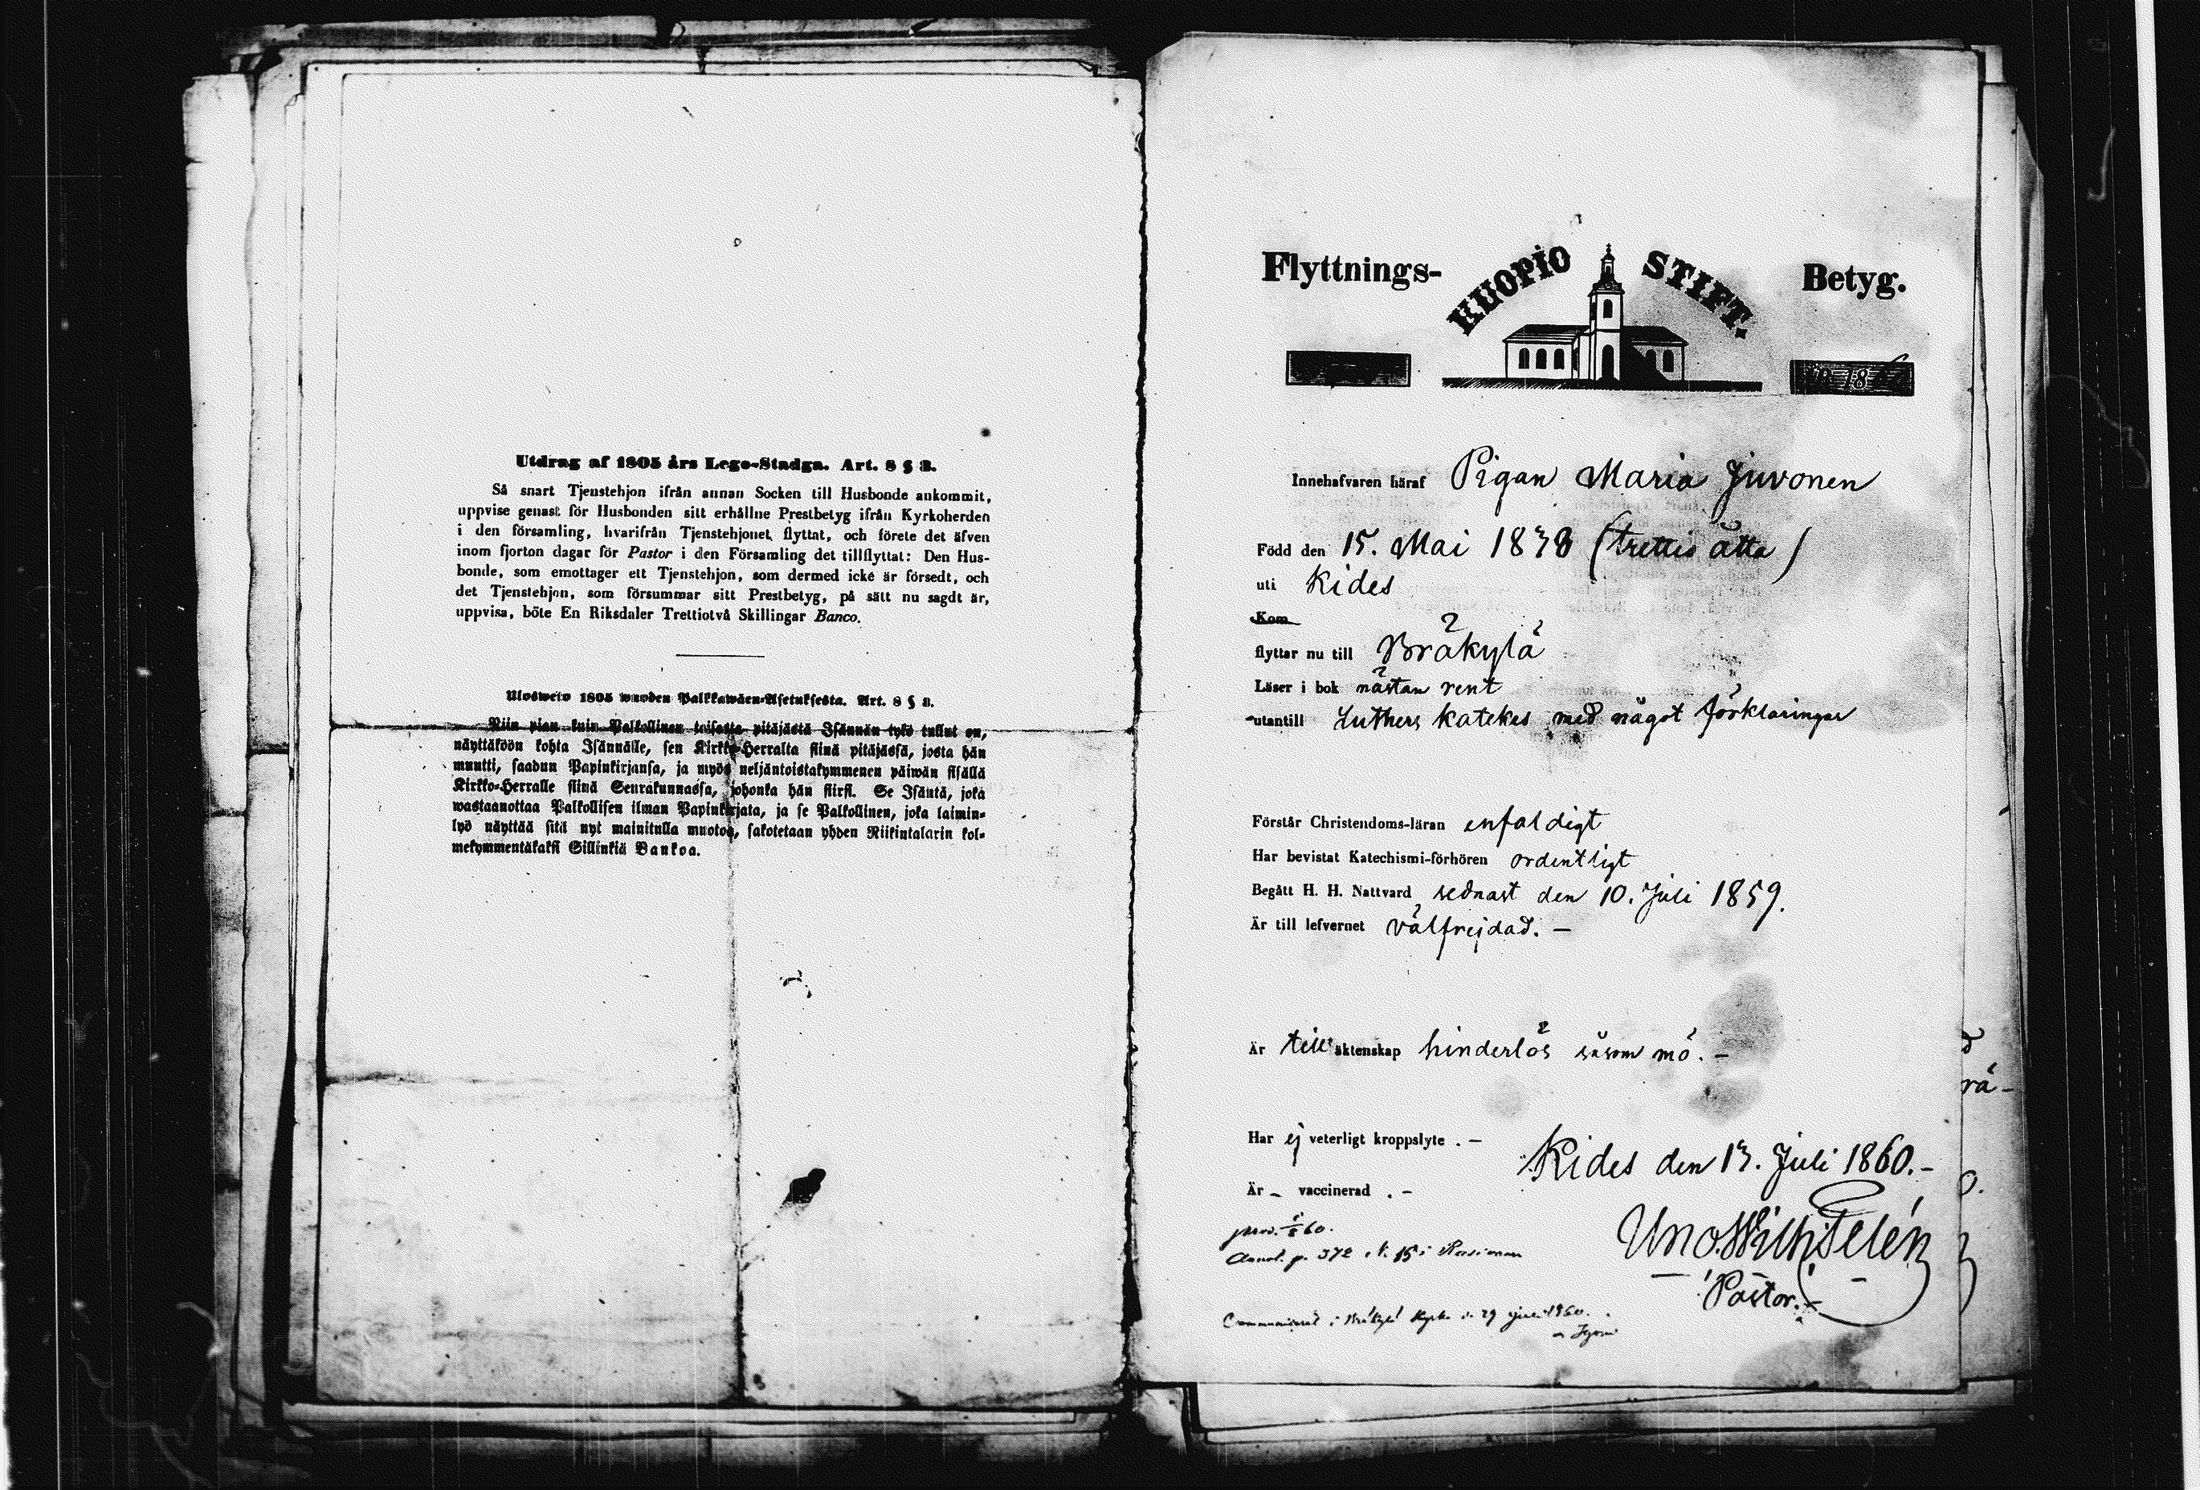 Utdrag af 1805 års Lego-Stadga. Art. 8 § 3.
Så snart Tjenstehjon ifrån annan Socken till Husbonde ankommit,
uppvise genast för Husbonden sitt erhållne Prestbetyg ifrån Kyrkoherden
i den församling, hvarifrån Tjenstehjonet flyttat, och förete det äfven
inom fjorton dagar för Pastor i den Församling det tillflyttat: Den Hus-
bonde, som emottager ett Tjenstehjon, som dermed icke är försedt, och
det Tjenstehjon, som försummar sitt Prestbetyg, på sätt nu sagdt är,
uppvisa, böte En Riksdaler Trettiotvå Skillingar Banco.
Ulosweto 1805 wuoden Palkkawäen-Asetuksesta. Art. 8 § 3.
Niin pian kuin Palkollinen toisesta pitäjästä Isännän tykö tullut on,
näyttäköön kohta Isännälle, sen Kirkko-Herralta siinä pitäjässä, josta hän
muutti, saadun Papinkirjansa, ja myös neljäntoistakymmenen päiwän sisällä
Kirkko-Herralle siinä Seurakunnassa, johonka hän siirsi. Se Isäntä, joka
wastaanottaa Palkollisen ilman Papinkirjata, ja se Palkollinen, joka laimin-
lyö näyttää sitä nyt mainitulla muotoa, sakotetaan yhden Riikintalarin kol-
mekymmentäkaksi Sillinkiä Bankoa.
Flyttnings- KUOPIO STIFT. Betyg.
18
Innehafvaren häraf Pigan Maria Juvonen
Född den 15. Mai 1838 (trettio åtta)
uti Kides
Kom
flyttar nu till Bräkylä
Läser i bok nästan rent
utantill Luthers Katekes med något förklaringar
Förstår Christendoms-läran enfaldigt
Har bevistat Katechismi-förhören ordentligt
Begått H. H. Nattvard sednast den 10. Juli 1859.
Är till lefvernet välfrejdad. —
Är till äktenskap hinderlös såsom mö. —
Har ej veterligt kroppslyte. —
Kides den 13. Juli 1860. —
Är – vaccinerad. —
60.
Annot. p. 372 N. 15 i
Uno Wilh: Telén
Pastor.
Communicerat i Bräkylä Kyrka d. 29 Juli 1860.